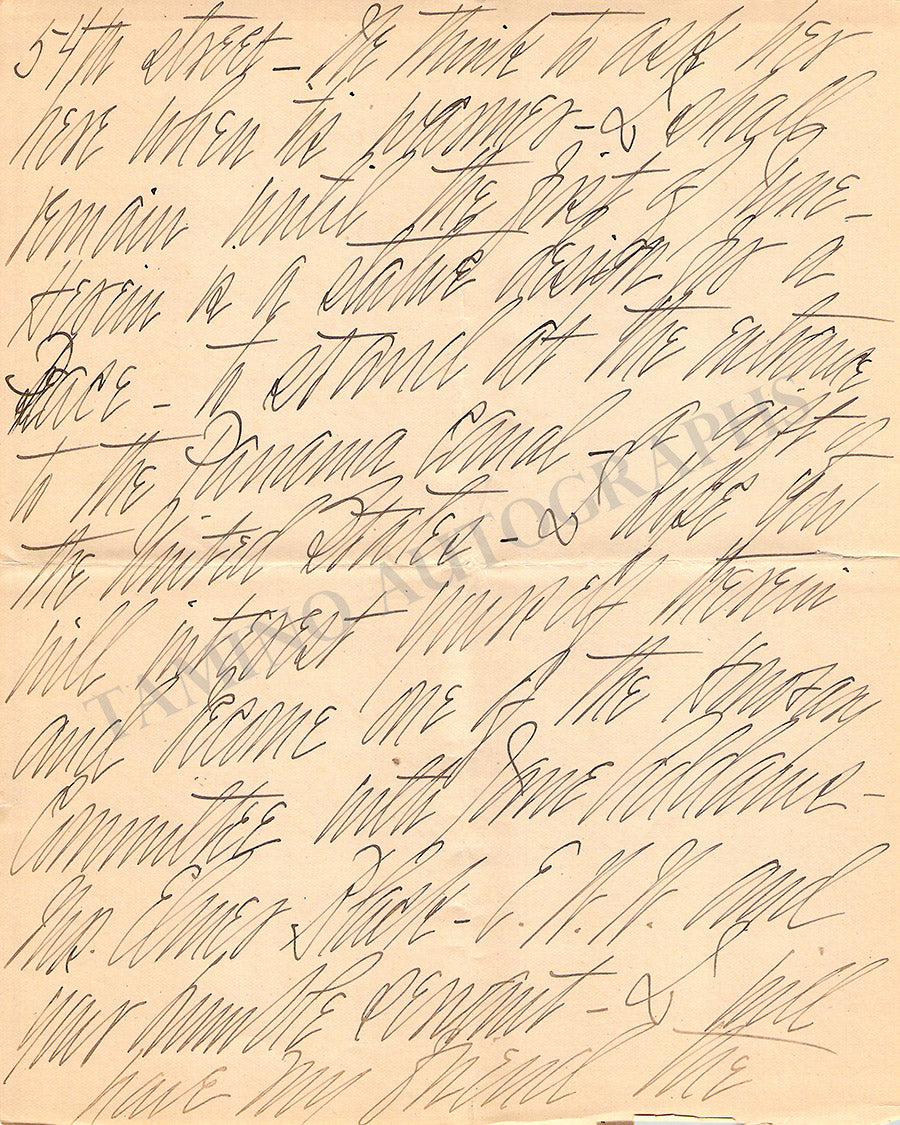 54th street – We think to ask her
here when tis warmer – & shall
remain until the first of June –
Herein is a statue design for a
Peace – to stand at the entrance
to the Panama Canal – A gift of
the United States – & ask you
will interest yourself therein
and become one of the Honorary
Committee with Jane Addams –
Mrs. Elmer Black – E. W. W. and
your humble servant – & will
have my friend the
TAMINO AUTOGRAPHS